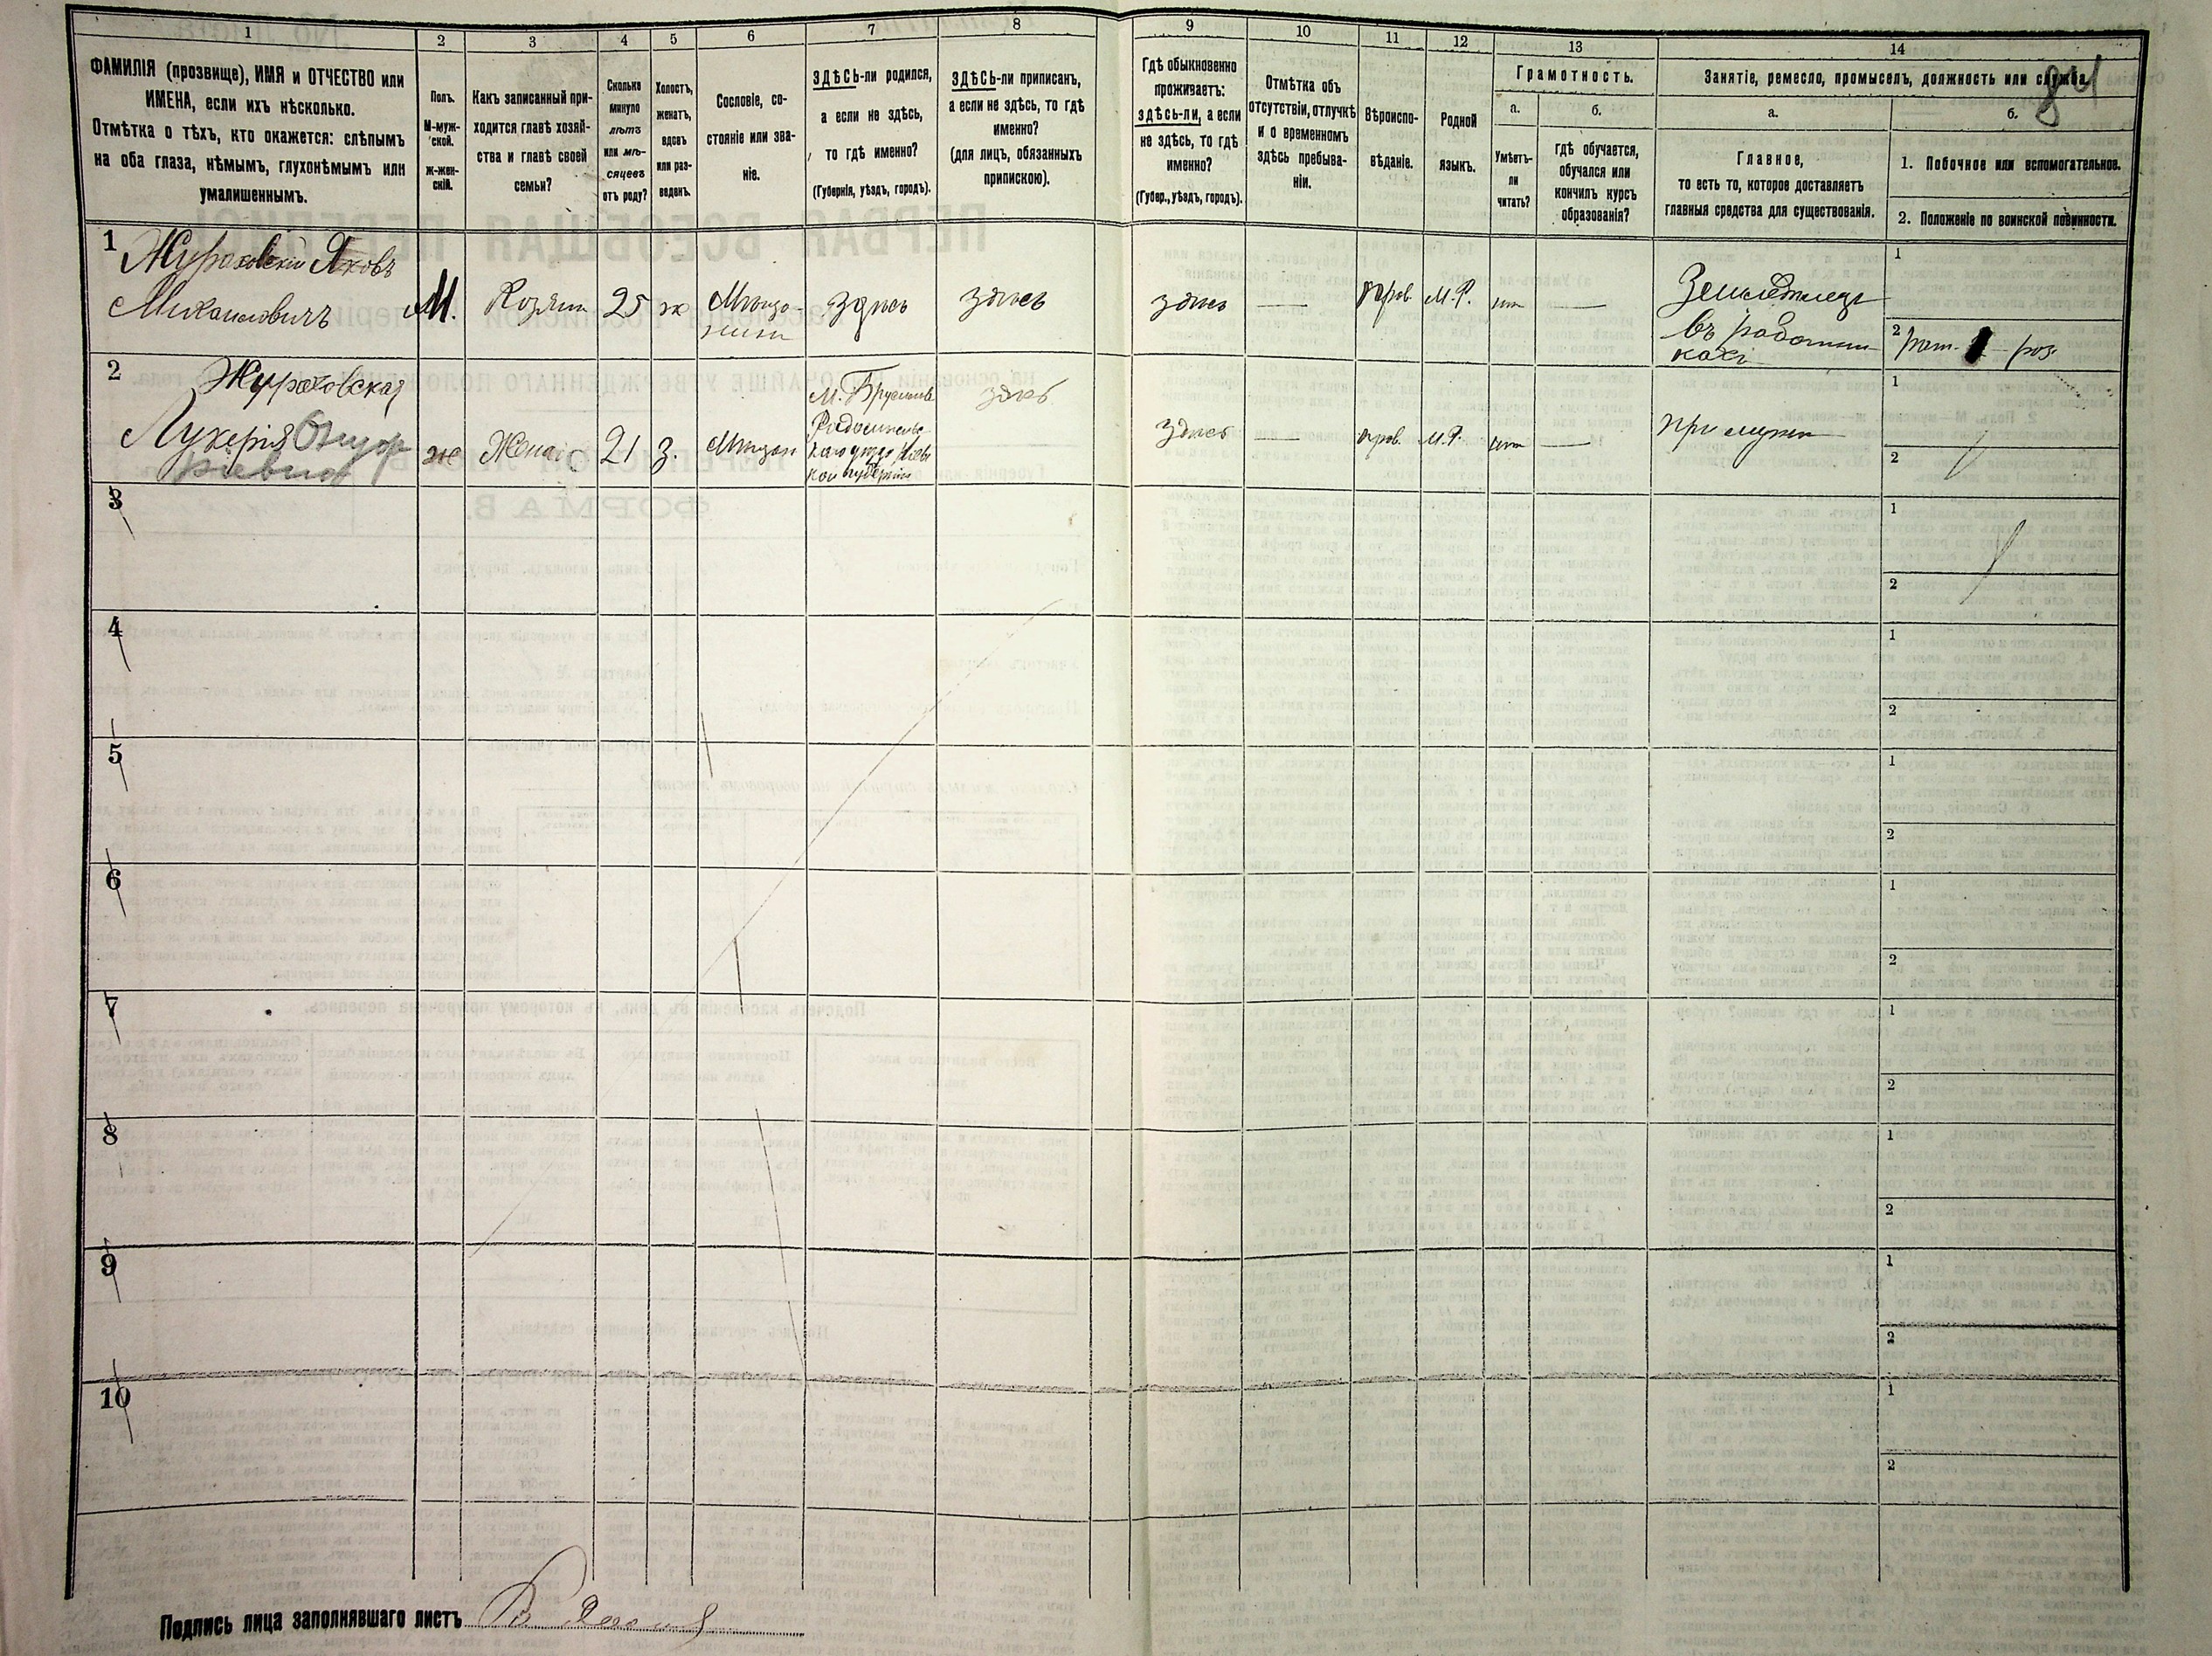 1
2
3
4
5
6
7
8
9
10
11
12
13
14
ФАМИЛІЯ (прозвище), ИМЯ и ОТЧЕСТВО или
ИМЕНА, если ихъ нѣсколько.
Отмѣтка о тѣхъ, кто окажется: слѣпымъ
на оба глаза, нѣмымъ, глухонѣмымъ или
умалишеннымъ.
Полъ.
М-муж-
ской.
Ж-жен-
скій.
Какъ записанный при-
ходится главѣ хозяй-
ства и главѣ своей
семьи?
Сколько
минуло
лѣтъ
или мѣ-
сяцевъ
отъ роду?
Холостъ,
женатъ,
вдовъ
или раз-
веденъ.
Сословіе, со-
стояніе или зва-
ніе.
ЗДѢСЬ-ли родился,
а если не здѣсь,
то гдѣ именно?
(Губернія, уѣздъ, городъ).
ЗДѢСЬ-ли приписанъ,
а если не здѣсь, то гдѣ
именно?
(для лицъ, обязанныхъ
припискою).
Гдѣ обыкновенно
проживаетъ:
здѣсь-ли, а если
не здѣсь, то гдѣ
именно?
(Губер., уѣздъ, городъ).
Отмѣтка объ
отсутствіи, отлучкѣ
и о временномъ
здѣсь пребыва-
ніи.
Вѣроиспо-
вѣданіе.
Родной
языкъ.
Грамотность.
а.
б.
Умѣетъ-
ли
читать?
гдѣ обучается,
обучался или
кончилъ курсъ
образованія?
Занятіе, ремесло, промыселъ, должность или служба.
84
а.
б.
Главное,
то есть то, которое доставляетъ
главныя средства для существованія.
1. Побочное или вспомогательное.
2. Положеніе по воинской повинности.
1
Жураховскій Яковъ
Михаиловичъ
М.
Хозяин
25
ж
Мѣща-
нинъ
Здѣсь
здѣсь
здѣсь
—
прав.
М.Р.
нѣт
—
Земледѣлецъ
въ работни-
кахъ
1
2
2
Жураховская
Лукерія
ж
Жена
21
З.
Мѣщан
М. Брусиловъ
Радомысль-
каго уѣзда Кіевс
кой губерніи
здѣсь
здѣсь
—
прав.
М.Р.
нѣт
—
при мужѣ
1
2
3
1
2
4
1
2
5
1
2
6
1
2
7
1
2
8
1
2
9
1
2
10
1
2
Подпись лица заполнявшаго листъ